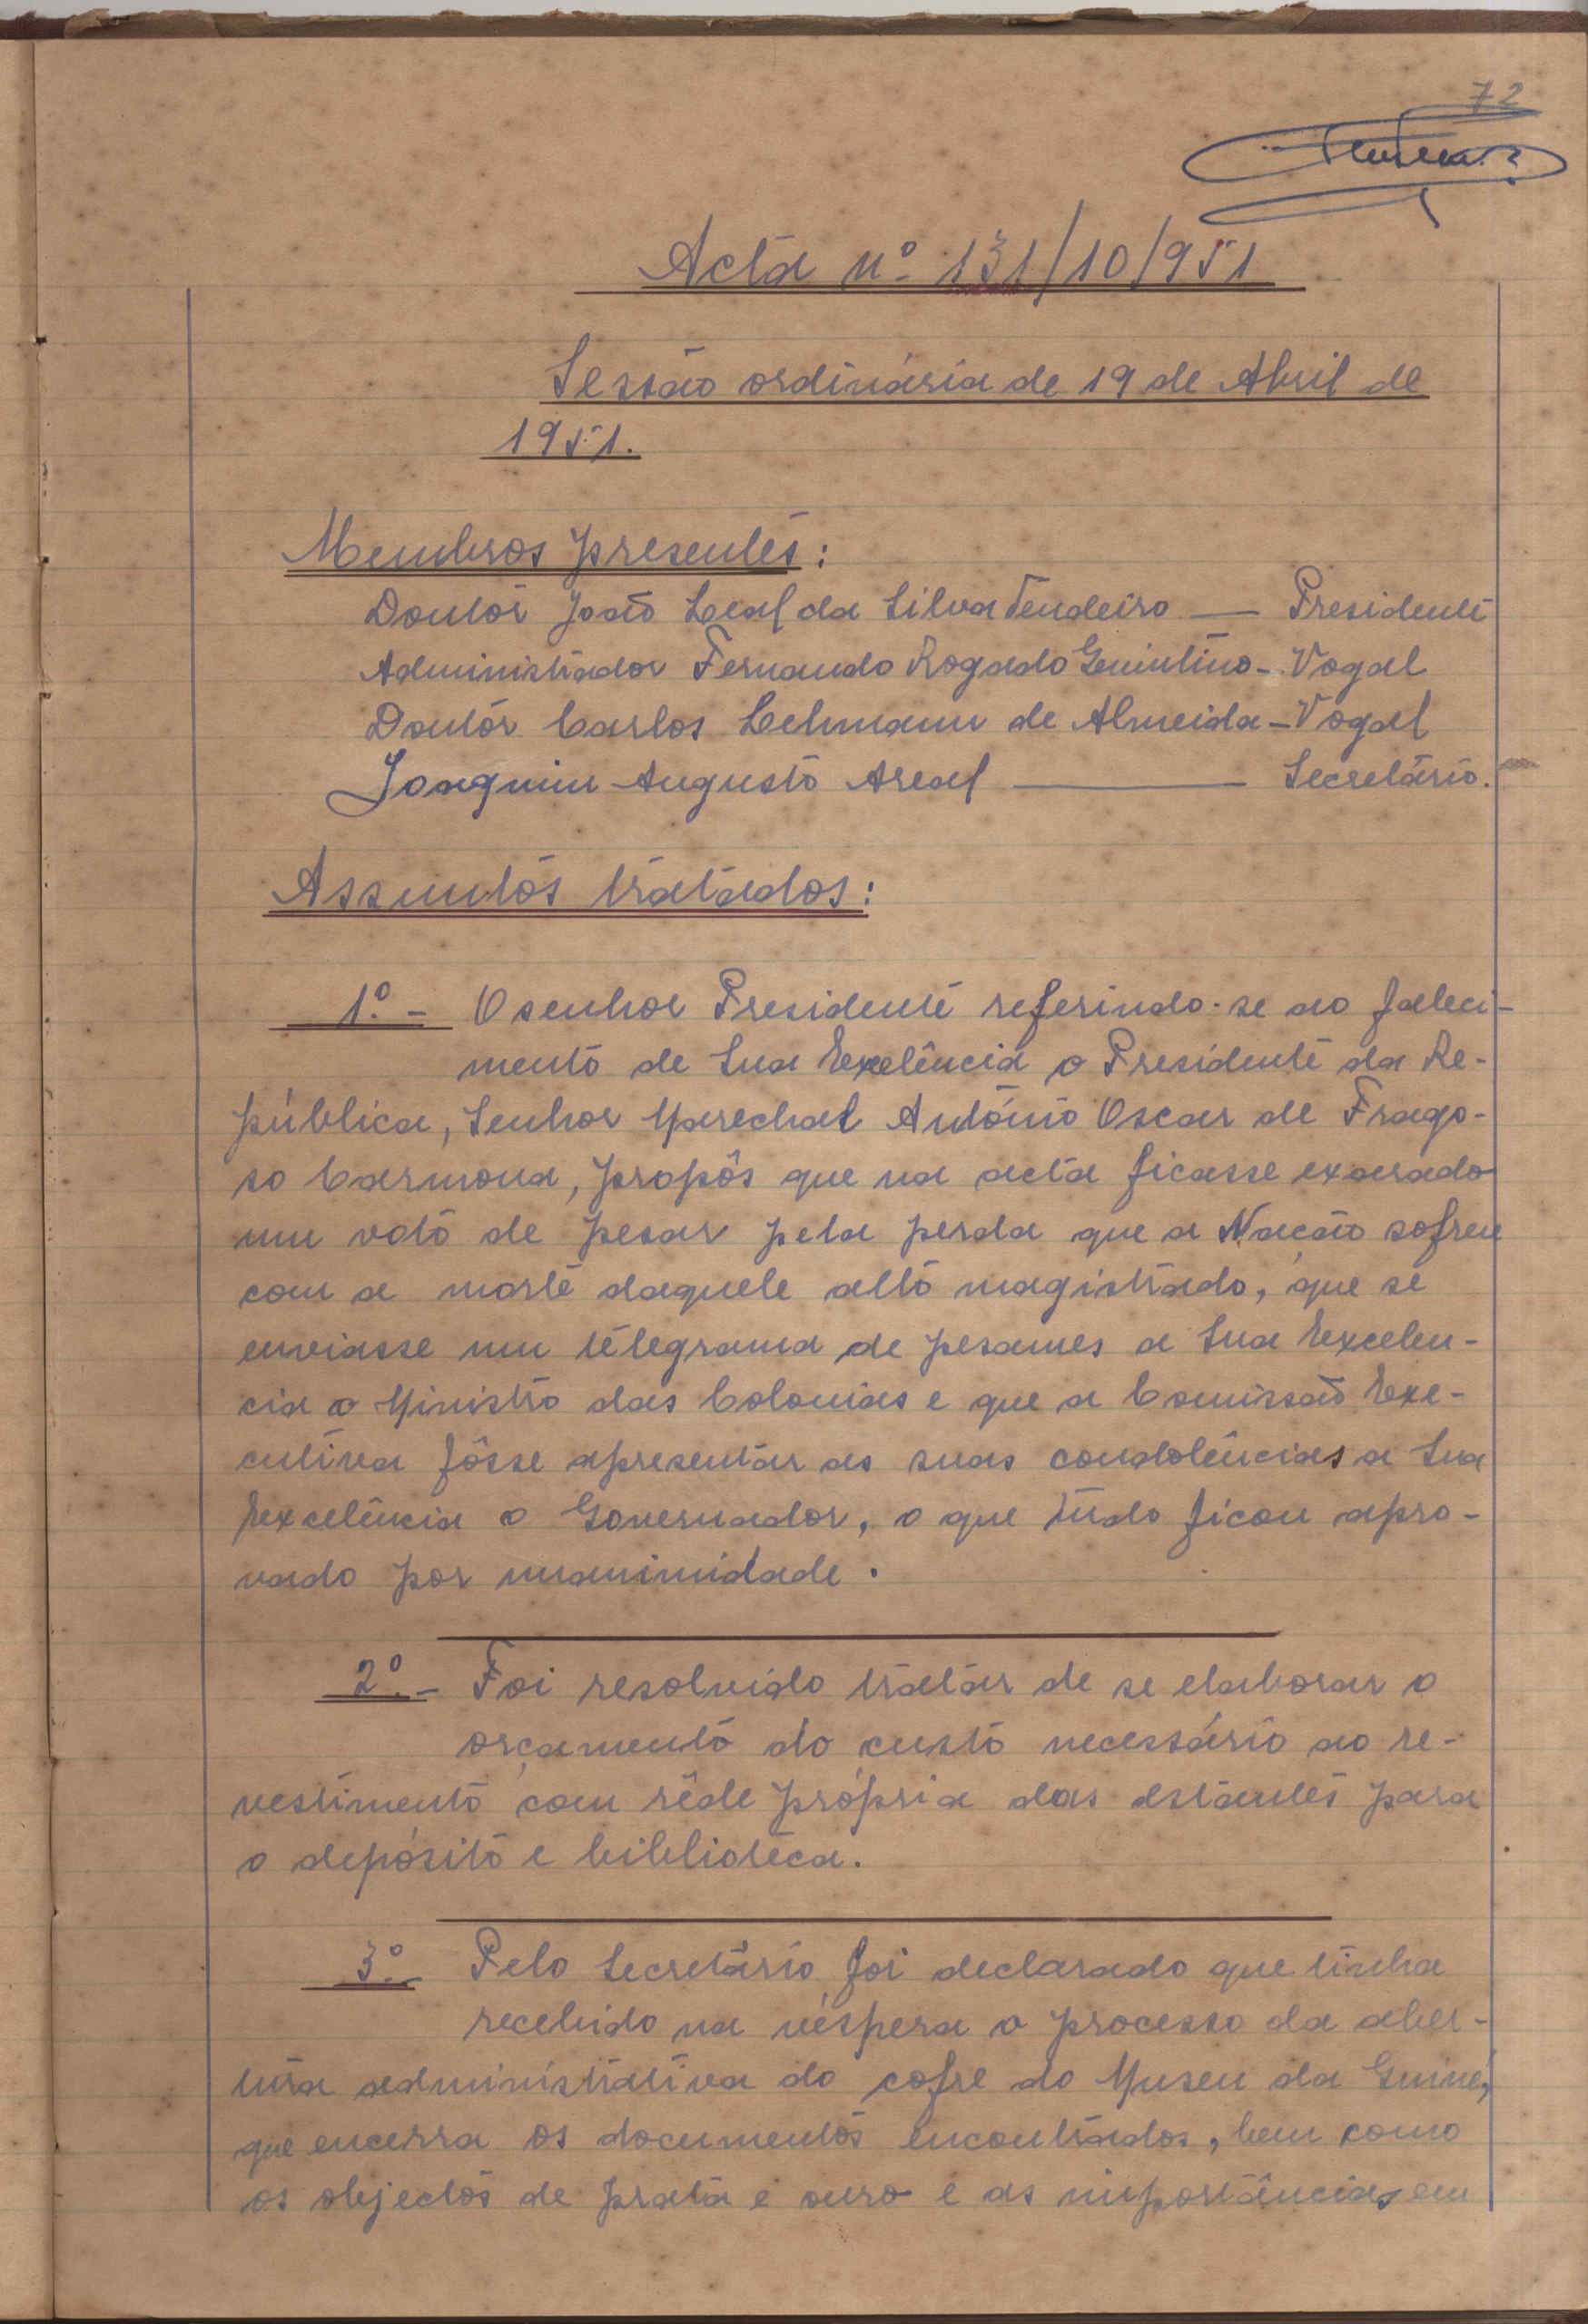 72
Acta nº 131/10/951
Sessão ordinária de 19 de Abril de
1951.
Membros presentes:
Doutor João Leal da Silva Tendeiro — Presidente
Administrador Fernando Rogado Quintino - Vogal
Doutor Carlos Lehmann de Almeida - Vogal
Joaquim Augusto Areal — Secretário.
Assuntos tratados:
1º. - O senhor Presidente referindo-se ao faleci-
mento de Sua Exelência o Presidente da Re-
pública, Senhor Marechal António Oscar de Frago-
so Carmona, propôs que na acta ficasse exarado
um voto de pesar pela perda que a Nação sofreu
com a morte daquele alto magistrado, que se
enviasse um telegrama de pesames a Sua Excelen-
cia o Ministro das Colonias e que a Comissão Exe-
cutiva fôsse apresentar as suas condolências a Sua
Excelência o Governador, o que tudo ficou apro-
vado por unanimidade.
2º. - Foi resolvido tratar de se elaborar o
orçamento do custo necessário ao re-
vestimento com rêde própria das estantes para
o depósito e biblioteca.
3º. - Pelo Secretário foi declarado que tinha
recebido na véspera o processo da aber-
tura administrativa do cofre do Museu da Guiné,
que encerra os documentos encontrados, bem como
os objectos de prata e ouro e as importâncias em